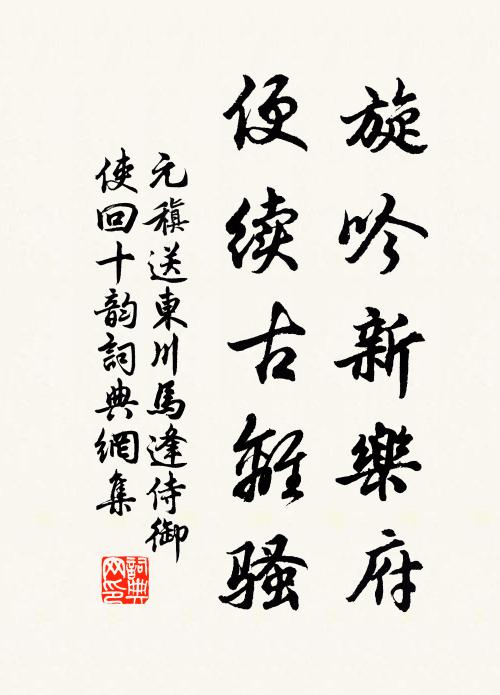 旋吟新樂府
便续古離骚
元稹送東川馬逢侍御
使回十韵詞典網集
詞典网印